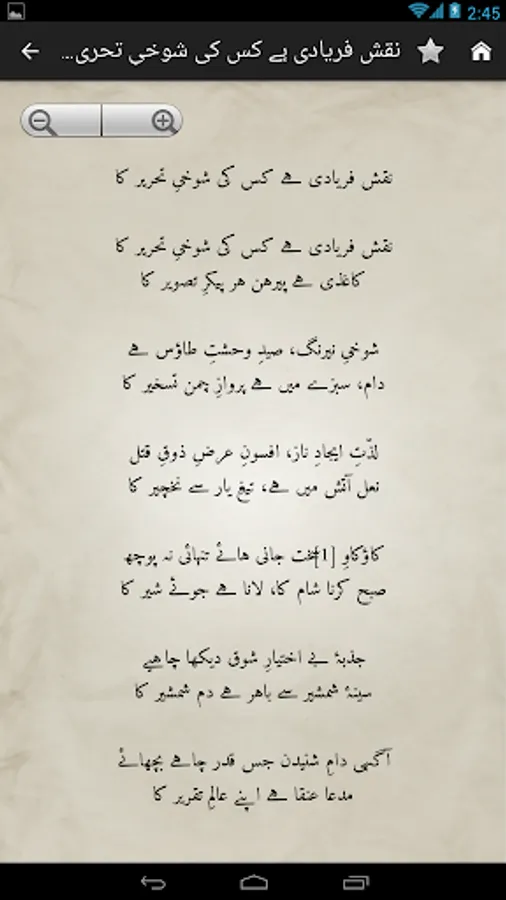 2:45
نقش فریادی ہے کس کی شوخیِ تحری...
نقش فریادی ہے کس کی شوخیِ تحریر کا
نقش فریادی ہے کس کی شوخیِ تحریر کا
کاغذی ہے پیرہن ہر پیکرِ تصویر کا
شوخیِ نیرنگ، صیدِ وحشتِ طاؤس ہے
دام، سبزے میں ہے پروازِ چمن تسخیر کا
لذّتِ ایجادِ ناز، افسونِ عرضِ ذوقِ قتل
نعل آتش میں ہے، تیغِ یار سے نخچیر کا
کاؤکاوِ [1]سخت جانی ہائے تنہائی نہ پوچھ
صبح کرنا شام کا، لانا ہے جوئے شیر کا
جذبۂ بے اختیارِ شوق دیکھا چاہیے
سینۂ شمشیر سے باہر ہے دم شمشیر کا
آگہی دامِ شنیدن جس قدر چاہے بچھائے
مدعا عنقا ہے اپنے عالمِ تقریر کا